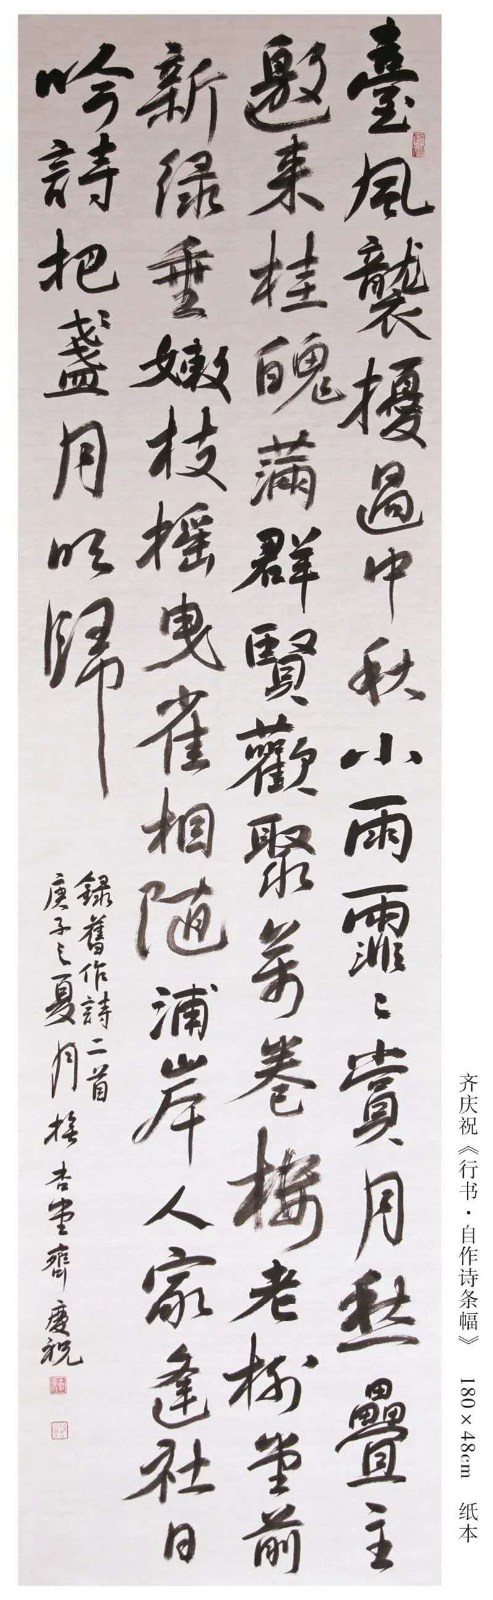 臺风襲擾過中秋小雨霏〻賞月愁疊主
邀来桂魄滿群賢歡聚萬卷楼老樹堂前
新绿垂嫩枝摇曳雀相随浦岸人家逢社日
吟詩把盞月明歸
録舊作詩二首
庚子之夏月於杏堂齊慶祝
齐庆祝《行书·自作诗条幅》 180×48cm 纸本